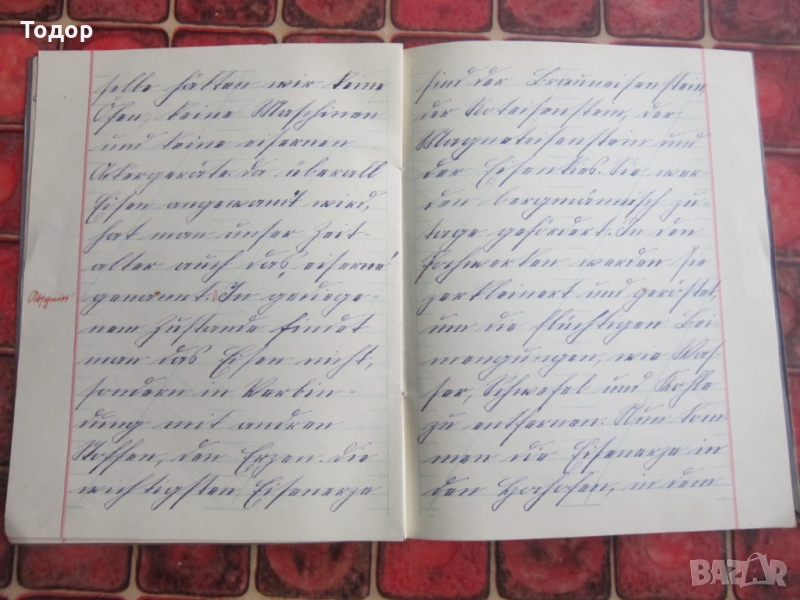 Todor
selbe hätten wir keine
Öfen, keine Maschinen
und keine eisernen
Akergeräte. da überall
Eisen angewandt wird,
hat man unser Zeit-
alter auch das „eiserne“
genannt. In gedege-
nem Zustande findet
man das Eisen nicht,
sondern in Verbin-
dung mit andren
Stoffen, den Erzen. die
wichtigsten Eisenerze
sind der Brauneisenstein,
der Roteisenstein, der
Magneteisenstein und
der Eisenkies. Sie wer-
den bergmännisch zu-
tage gefördert. In den
Pochwerken werden sie
zerkleinert und geröstet,
um die flüchtigen Bei-
mengungen, wie Was-
ser, Schwefel und Kohle
zu entfernen. Nun kom
men die Eisenerze in
den Hochofen, in dem
BAZAR